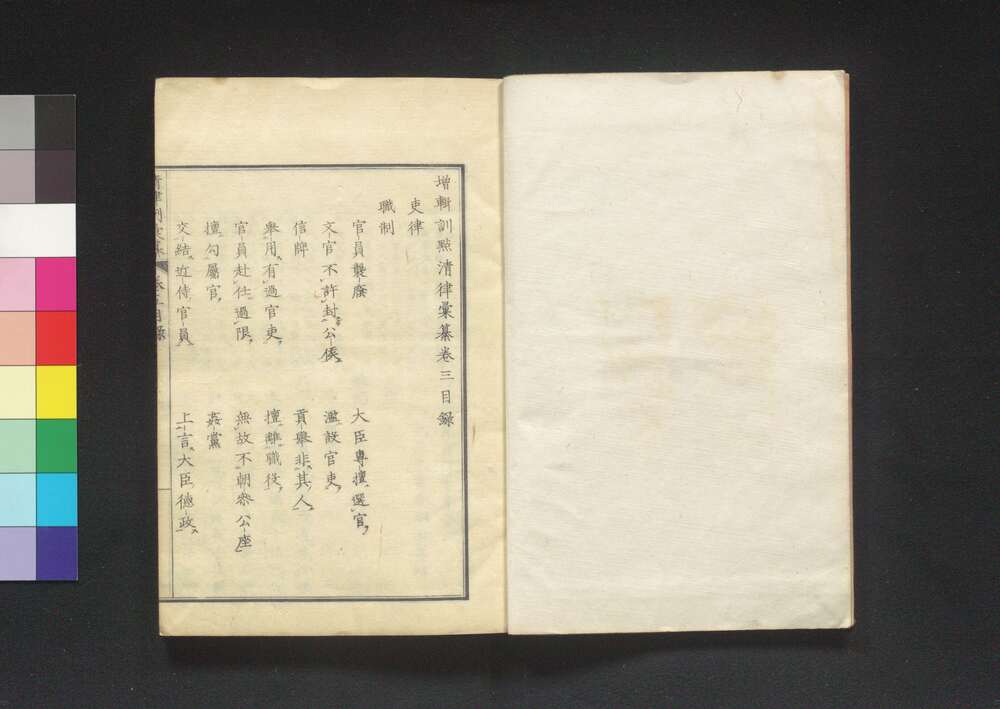 增輯訓點清律彙纂卷三目錄
吏律
職制
官員襲廕
大臣專擅選官
文官不許封公侯
濫設官吏
信牌
貢舉非其人
舉用有過官吏
擅離職役
官員赴任過限
無故不朝參公座
擅勾屬官
姦黨
交結近侍官員
上言大臣德政